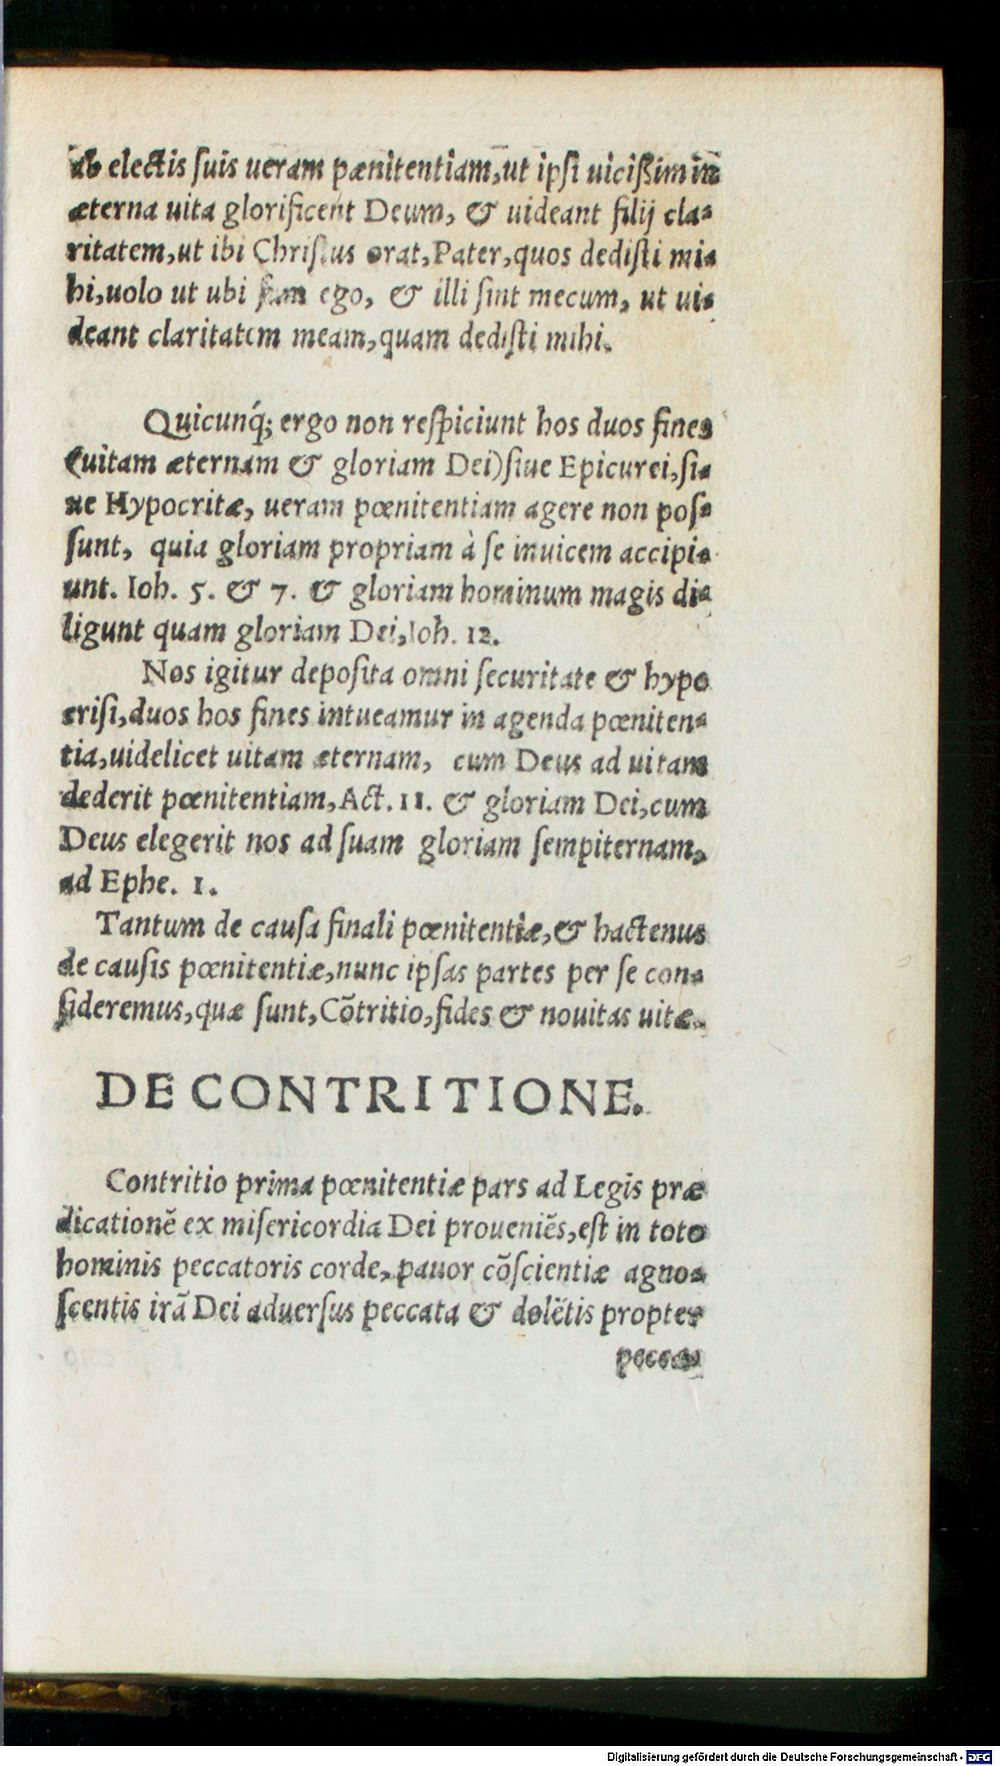 ab electis suis ueram pænitentiam, ut ipsi uicißim in
æterna uita glorificent Deum, & uideant filij cla-
ritatem, ut ibi Christus orat, Pater, quos dedisti mi-
hi, uolo ut ubi sum ego, & illi sint mecum, ut ui-
deant claritatem meam, quam dedisti mihi.
Quicunq́; ergo non respiciunt hos duos fines
(uitam æternam & gloriam Dei) siue Epicurei, si-
ue Hypocritæ, ueram pœnitentiam agere non pos-
sunt, quia gloriam propriam à se inuicem accipi-
unt. Ioh. 5. & 7. & gloriam hominum magis di-
ligunt quam gloriam Dei, Ioh. 12.
Nos igitur deposita omni securitate & hypo
crisi, duos hos fines intueamur in agenda pœniten-
tia, uidelicet uitam æternam, cum Deus ad uitam
dederit pœnitentiam, Act. 11. & gloriam Dei, cum
Deus elegerit nos ad suam gloriam sempiternam,
ad Ephe. 1.
Tantum de causa finali pœnitentiæ, & hactenus
de causis pœnitentiæ, nunc ipsas partes per se con-
sideremus, quæ sunt, Cõtritio, fides & nouitas uitæ.
DE CONTRITIONE.
Contritio prima pœnitentiæ pars ad Legis præ
dicationẽ ex misericordia Dei proueniẽs, est in toto
hominis peccatoris corde, pauor cõscientiæ agno-
scentis irã Dei aduersus peccata & dolẽtis propter
pecca-
Digitalisierung gefördert durch die Deutsche Forschungsgemeinschaft - DFG